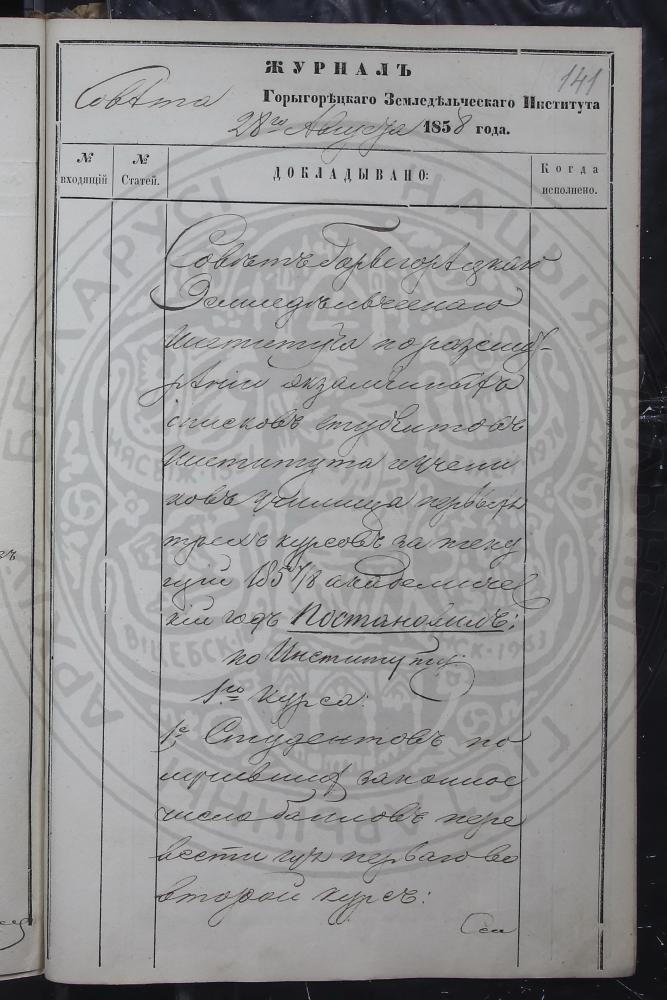 141
ЖУРНАЛЪ
Совѣта Горыгорѣцкаго Земледѣльческаго Института
28го Августа 1858 года.
№ входящій
№ Статей.
ДОКЛАДЫВАНО:
Когда исполнено.
Совѣтъ Горыгорѣцкаго
Земледѣльческаго
Института по разсмо-
трѣніи экзаменныхъ
списковъ студентовъ
Института и учени
ковъ училища первыхъ
трехъ курсовъ за теку
щій 1857/8 академичес
кій годъ Постановилъ:
по Институту
1го курса:
1е Студентовъ по
лучившихъ законное
число балловъ пере
вести изъ перваго во
второй курсъ: